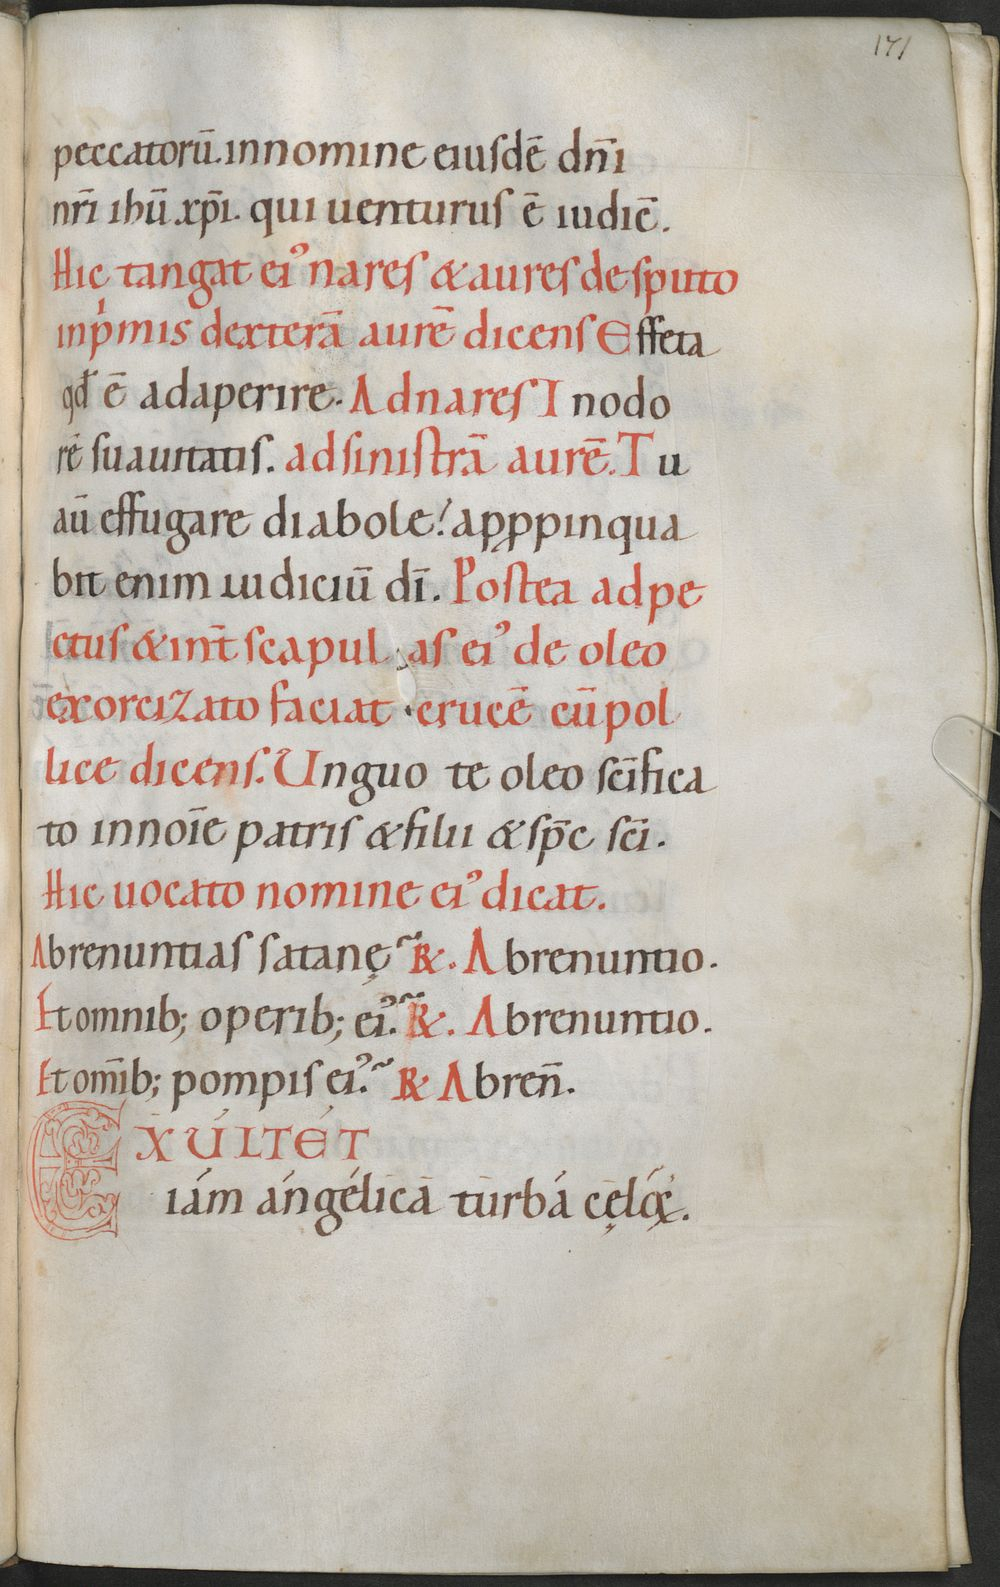 171
peccatorū. in nomine eiusdē dn̄i
nr̄i ih̄ū xp̄i. qui uenturus ē iudic̄e.
Hic tangat ei⁹ nares & aures de sputo
inp̍mis dexterā aurē dicens Effeta
qđ ē adaperire. Ad nares In odo
rē suauitatis. ad sinistrā aurē. Tu
aū effugare diabole! apꝓpinqua
bit enim iudiciū dī. Postea ad pe
ctus & int̄ scapulas ei⁹ de oleo
exorcizato faciat crucē cū pol
lice dicens. Unguo te oleo sc̄ifica
to in noīe patris & filii & sp̄c sc̄i.
Hic uocato nomine ei⁹ dicat.
Abrenuntias satanę ℟. Abrenuntio.
Et omnib; operib; ei⁹. ℟. Abrenuntio.
Et om̄ib; pompis ei⁹. ℟ Abreñ.
EXÚLTÉT
iám ángélicā túrbá cęlóꝝ.